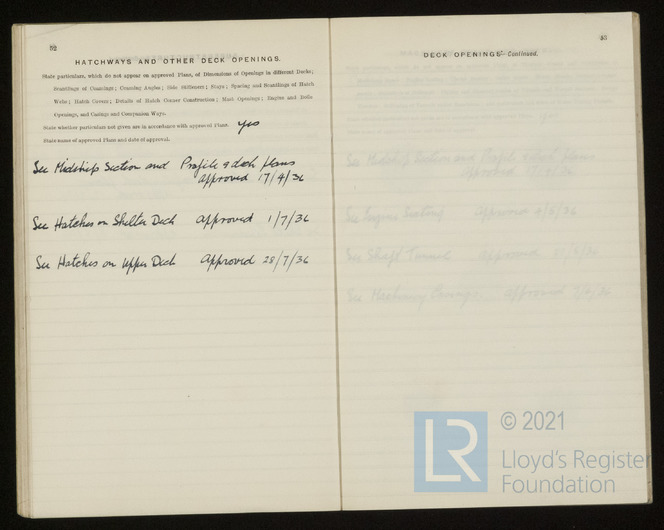 52
HATCHWAYS AND OTHER DECK OPENINGS.
State particulars, which do not appear on approved Plans, of Dimensions of Openings in different Decks;
Scantlings of Coamings; Coaming Angles; Side Stiffeners; Stays; Spacing and Scantlings of Hatch
Webs; Hatch Covers; Details of Hatch Corner Construction; Mast Openings; Engine and Boiler
Openings, and Casings and Companion Ways.
State whether particulars not given are in accordance with approved Plans. Yes
State names of approved Plans and dates of approval.
See Midship Section and Profile & deck plans
approved 17/4/36
See Hatches on Shelter Deck approved 1/7/36
See Hatches on Upper Deck approved 28/7/36
DECK OPENINGS—Continued.
See Midship Section and Profile & deck plans
approved
See approved
See Shaft Tunnel approved
See Machinery Casings approved
LR
© 2021
Lloyd's Register
Foundation